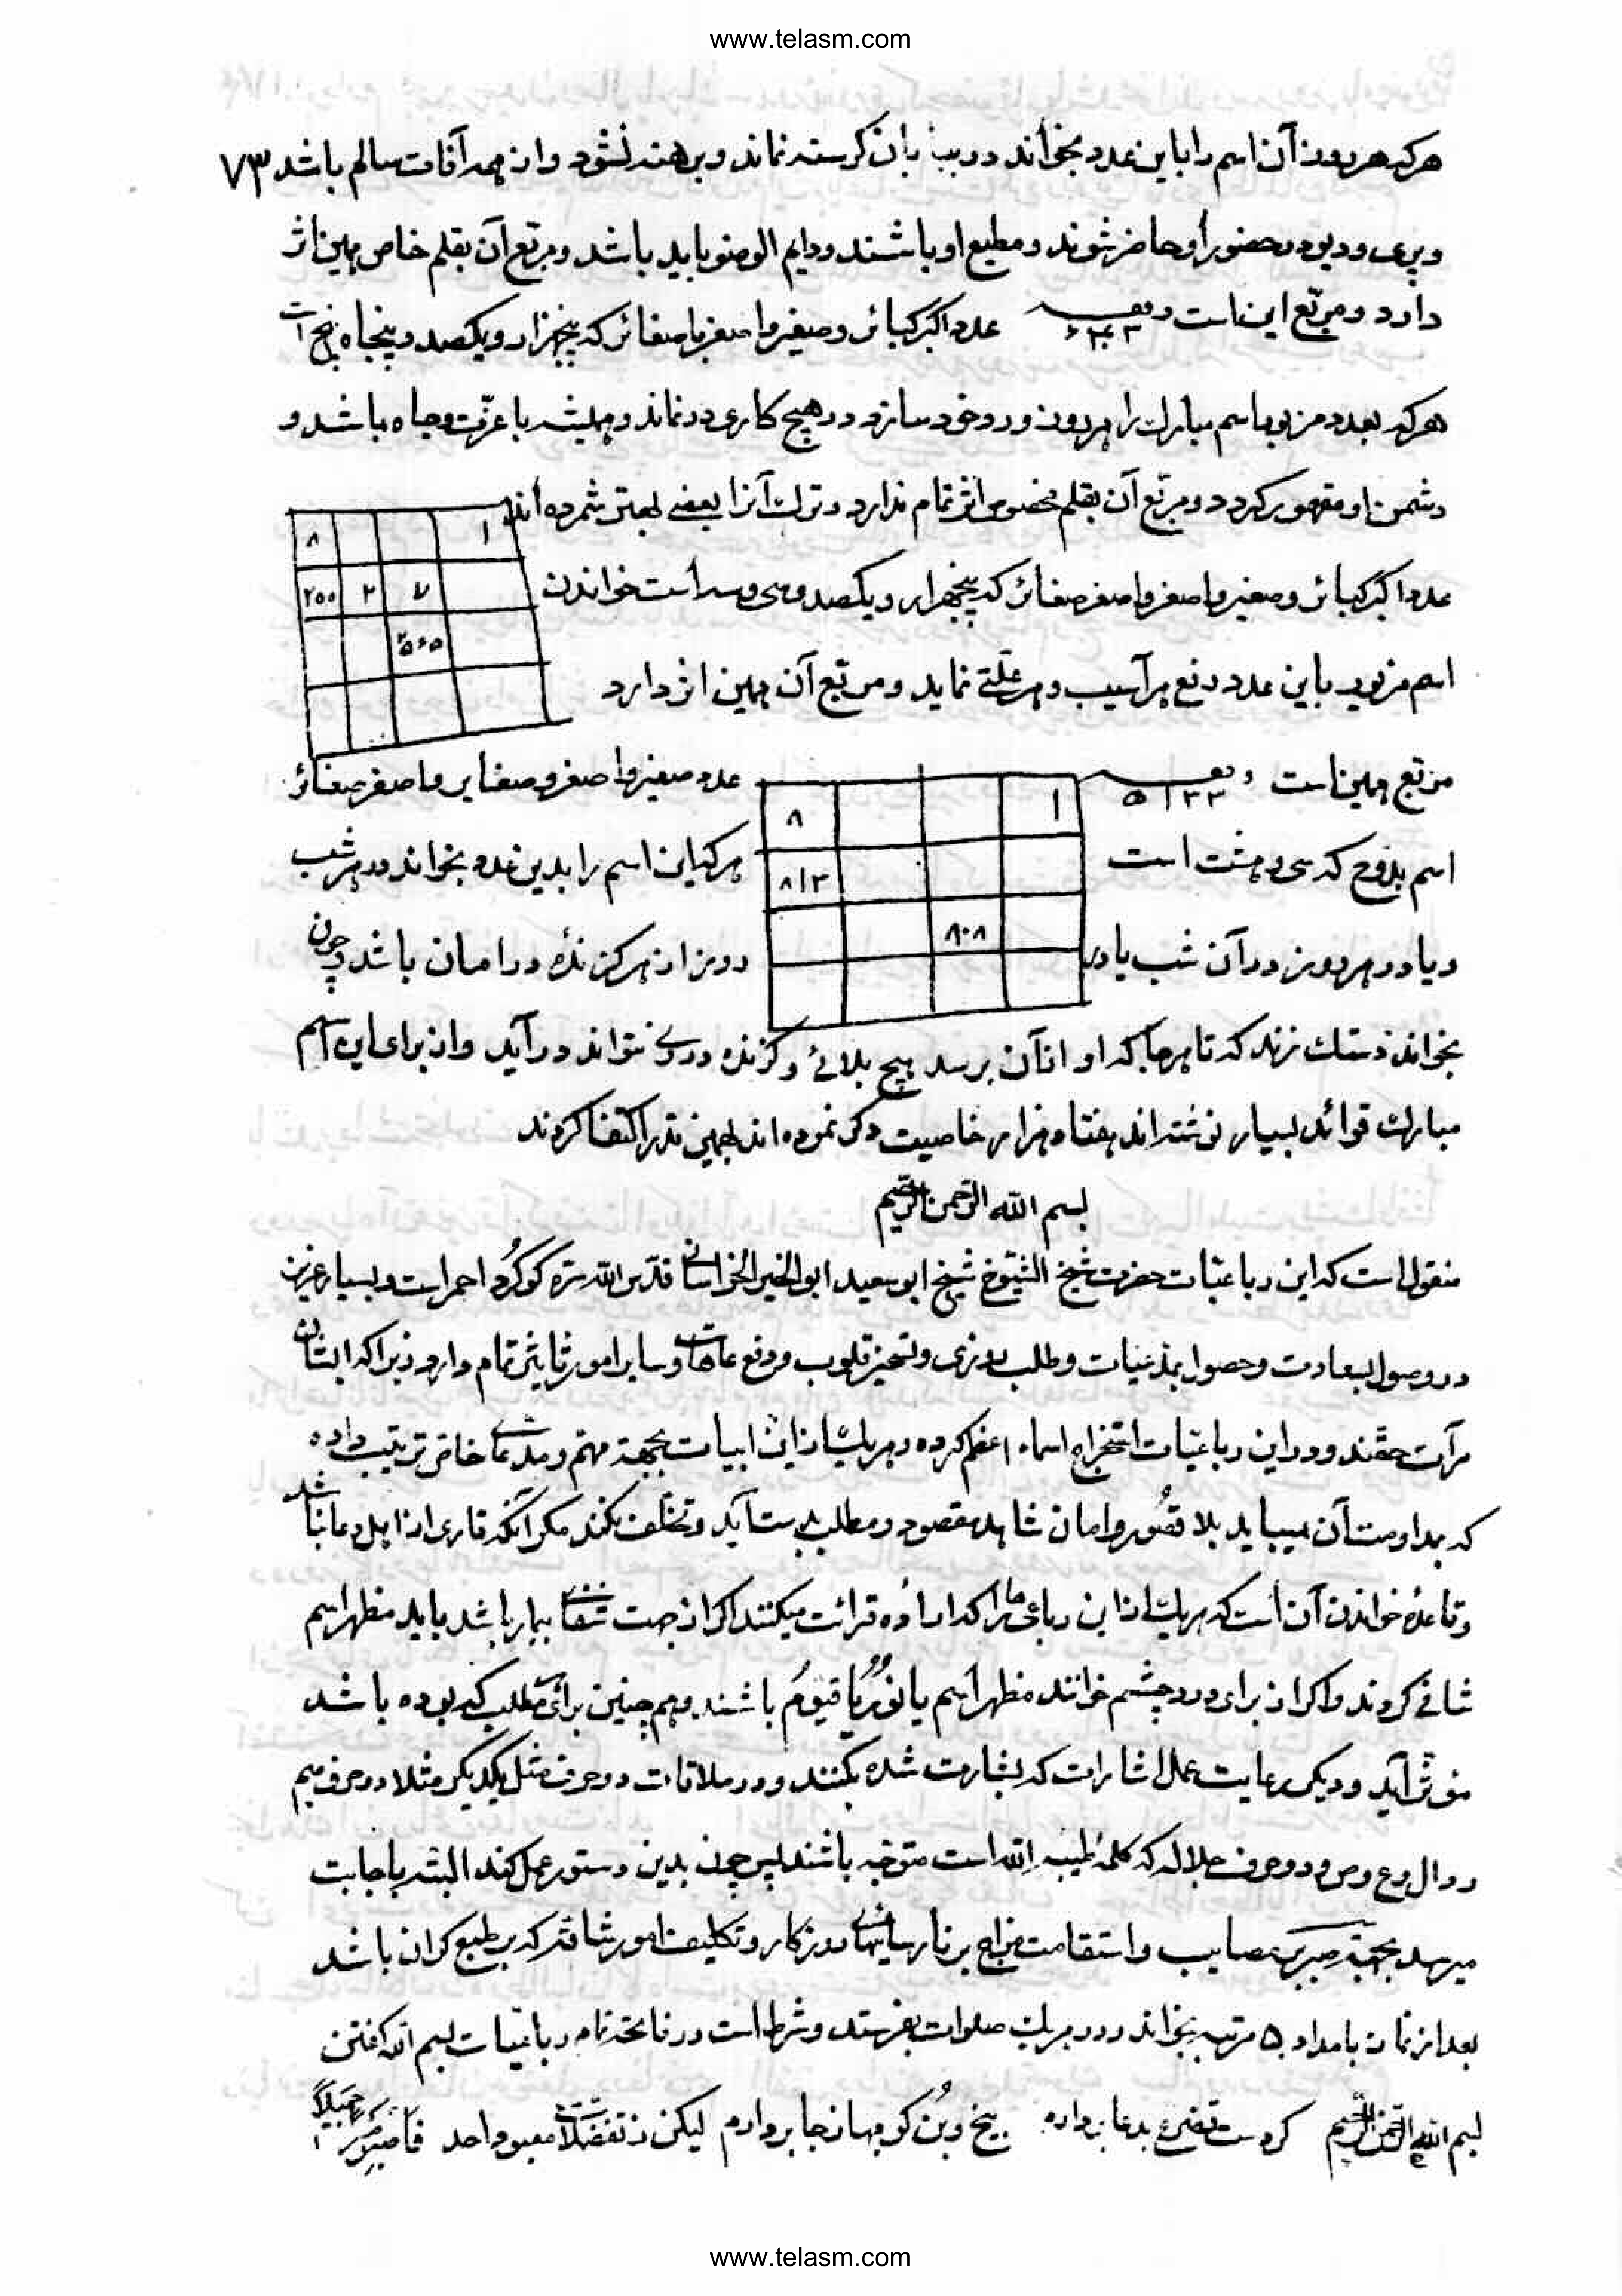 www.telasm.com
هرکه هر روز آن اسم را باین عدد بخواند در بیابان کرسنه نماند و برهنه نشود و از همه آفات سالم باشد ۷۳
و پری و دیو بحضور او حاضر شوند و مطیع او باشند و دایم الوضو باید باشد و مربّع آن بقلم خاص همین اثر
دارد و مربّع این است عدد اکبر کبائر و صغیر و اصغر با صغائر که پنجهزار و یکصد و پنجاه پنج است
هرکه بعدد مزبور اسم مبارک را هر روز ورد خود سازد در هیچ کاری در نماند و همیشه با عزّت و جاه باشد و
دشمن او مقهور کردد و مربّع آن بقلم مخصوص اثر تمام ندارد و ترک آنرا بعضی بهتر شمرده اند
۸ ۱
۲۰۰ ۲ ۷
عدد اکبر کبائر و صغیر و اصغر و اصغر صغائر که پنجهزار و یکصد و سی و سه است خواندن
اسم مزبور باین عدد دفع هر آسیب و هر علّتی نماید و مربّع آن همین اثر دارد
مربّع همین است ۵۱۳۳ عدد صغیر و اصغر و صغایر و اصغر صغائر
۸ ۱
۸۱۲
۸۰۸
اسم بدوح که سی و هشت است هر که این اسم را بدین عدد بخواند در هر شب
و یا در هر روز در آن شب یا در روز از هر کزنده در امان باشد و چون
بخواند دستک زند که تا هرجا که آواز آن برسد هیچ بلائی و کزنده در وی نتواند در آید و از برای این اسم
مبارک فوائد بسیار نوشته اند هفتاد هزار خاصیت ذکر نموده اند بهمین قدر اکتفا کردند
بسم الله الرّحمن الرّحیم
منقول است که این رباعیّات حضرت شیخ الشّیوخ شیخ ابو سعید ابو الخیر الخراسانی قدّس الله سرّه کوکرد احمر است و بسیار عزیز
در وصول سعادت و حصول مدّعیات و طلب روزی و تسخیر قلوب و دفع عاهات و سایر امور تأثیر تمام دارد زیرا که ایشان
مرآت حقّند و در این رباعیّات استخراج اسماء اعظم کرده و هر یک از این ابیات بجهة مهمّ و مدّعای خاص ترتیب داده
که بمداومت آن میباید بلا قصور و امان شاهد مقصود و مطلب بدست آید و تخلّف نکند مکر آنکه قاری از اهل دعا نباشد
و قاعدهٔ خواندن آن است که هر یک از این رباعی ها را که اراده قرائت میکنند اکر از جهت شفای بیمار باشد باید مظهر اسم
شافی کردند و اکر از برای درد چشم خوانند مظهر اسم یا نور یا قیوم باشند و هم چنین برای مطلب که بوده باشد
مؤثر آید و دیکر رعایت عمل اشارات که بشارت شده بکنند و در ملاقات دو حرف مثل یکدیکر مثلا دو حرف میم
و دال و ع و ص و دو حرف جلاله که کلمهٔ طیّبه الله است متوجّه باشند پس چون بدین دستور عمل کند البتّه باجابت
میرسد بجهة صبر بر مصایب و استقامت مزاج بر نارسائیهای روزکار و تکلیف امور شاقّه که بر طبع کران باشد
بعد از نماز بامداد ۵ مرتبه بخواند و در هر یک صلوات بفرستد و شرط است در فاتحه تمام رباعیّات بسم الله کفتن
بسم الله الرّحمن الرّحیم کر دست تضرّع بدعا بردارم بیخ و بُن کوهها ز جا بردارم لیکن ز تفضّلات معبود احد فاصبر صبراً جمیلاً
www.telasm.com